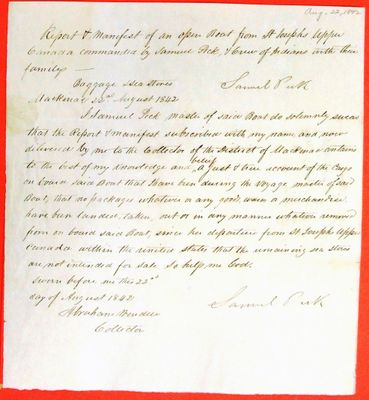 Aug. 22, 1842
Report & Manifest of an open Boat from St Josephs Upper
Canada commanded by Samuel Peck, & Crew of Indians with their
familys —
Baggage & sea stores Samuel Peck
Mackinac 22d August 1842
I Samuel Peck master of said Boat do solemnly swear
that the Report & manifest subscribed with my name and now
delivered by me to the Collector of the District of Mackinac contains
to the best of my knowledge and belief a just & true account of the Cargo
on board said Boat that I have been during the voyage master of said
Boat, that no packages whatever or any goods, wares or merchandise
have been landed, taken out or in any manner whatever removed
from on board said Boat, since her departure from St Josephs Upper
Canada within the united states that the remaining sea stores
are not intended for sale So help me God.
Sworn before me this 22d
day of August 1842 Samuel Peck
Abraham Wendell
Collector